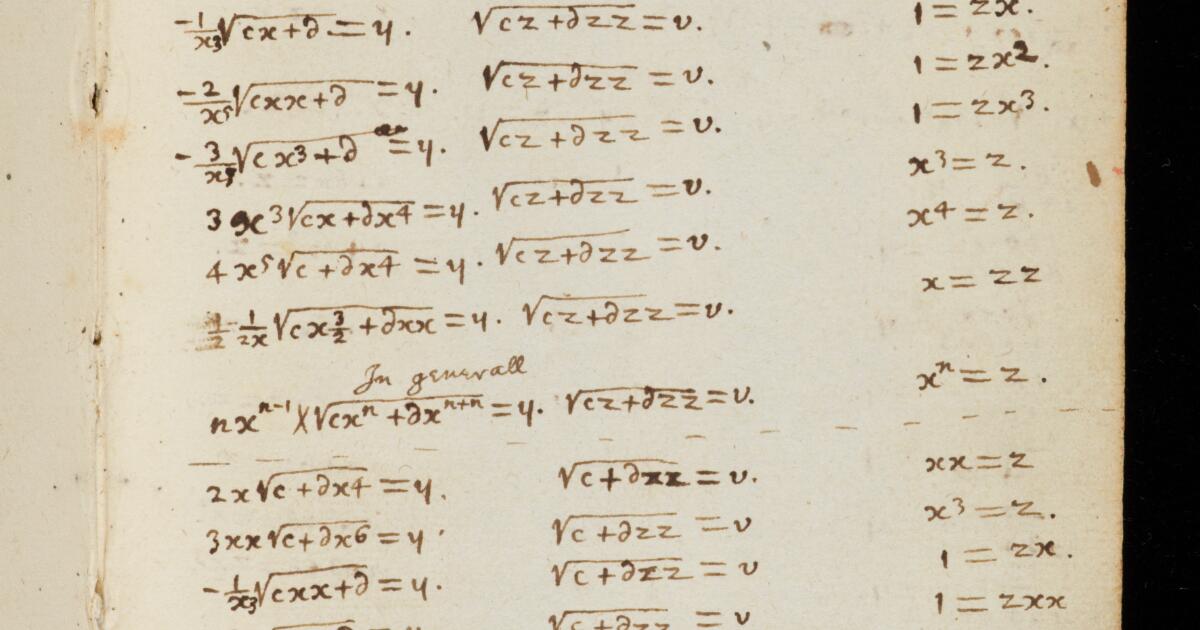 -1/x3 √cx+∂ = y. √cz+∂zz = v. 1 = zx.
-2/x5 √cxx+∂ = y. √cz+∂zz = v. 1 = zx2.
-3/x √cx3+∂ = y. √cz+∂zz = v. 1 = zx3.
3 x3 √cx+∂x4 = y. √cz+∂zz = v. x3 = z.
4x5 √c+∂x4 = y. √cz+∂zz = v. x4 = z.
1/2x √cx3/2+∂xx = y. √cz+∂zz = v. x = zz
In generall
nx^n-1 X √cx^n+∂x^n+n = y. √cz+∂zz = v. x^n = z.
2x √c+∂x4 = y. √c+∂zz = v. xx = z
3xx √c+∂x6 = y. √c+∂zz = v x3 = z.
-1/x3 √cxx+∂ = y. √c+∂zz = v 1 = zx.
√c+∂zz = v 1 = zxx